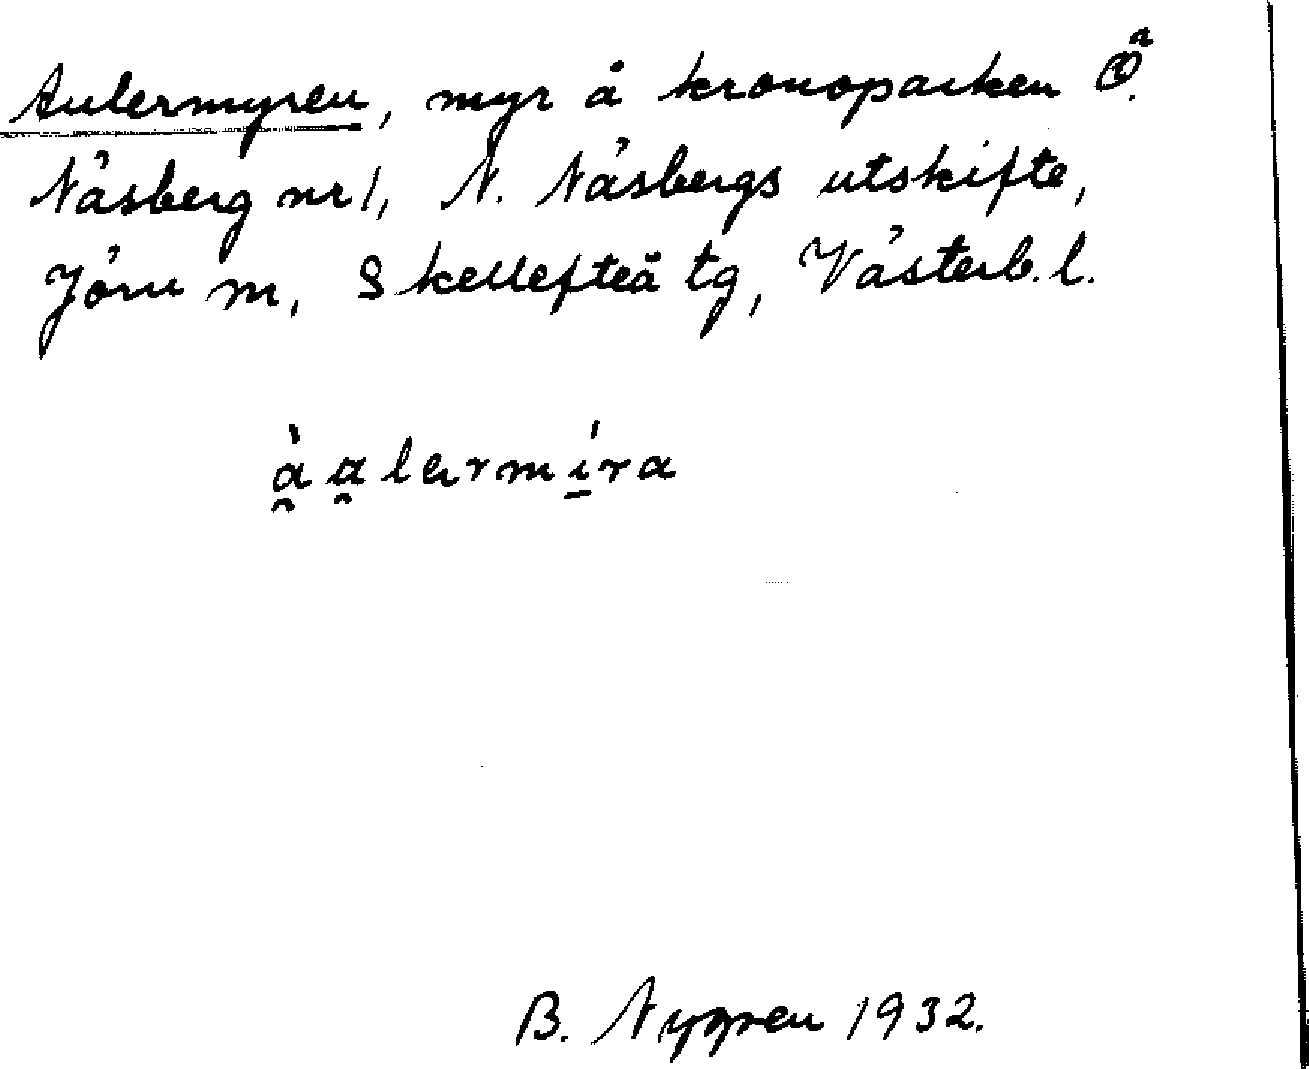 Aulermyren, myr å kronoparken Ö.
Näsberg nr 1, N. Näsbergs utskifte,
Jörn sn, Skellefteå tg, Västerb. l.
B. Nygren 1932.